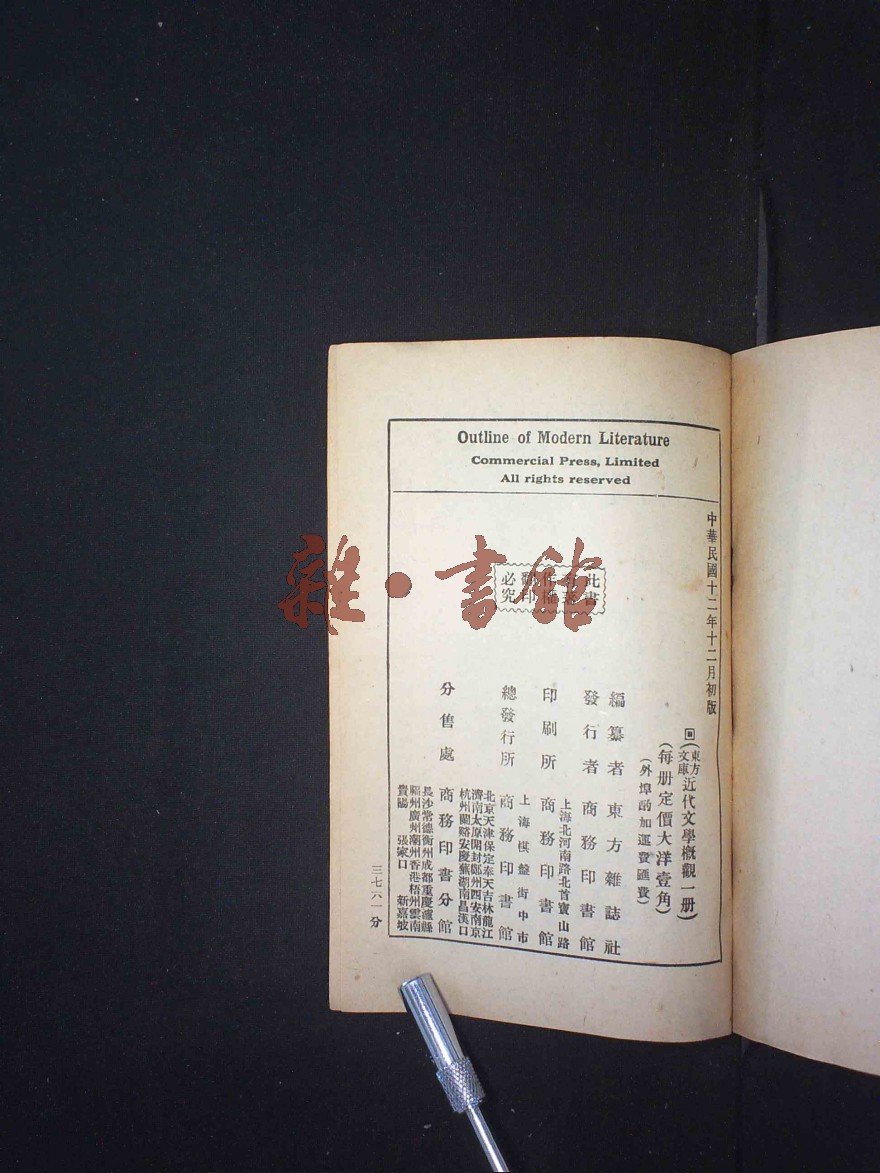 Outline of Modern Literature
Commercial Press, Limited
All rights reserved
中華民國十二年十二月初版
東方文庫
近代文學概觀一册
(每册定價大洋壹角)
(外埠酌加運費匯費)
編纂者 東方雜誌社
發行者 商務印書館
上海北河南路北首寶山路
印刷所 商務印書館
上海棋盤街中市
總發行所 商務印書館
北京天津保定奉天吉林龍江
濟南太原開封鄭州西安南京
杭州蘭谿安慶蕪湖南昌漢口
分售處 商務印書分館
長沙常德衡州成都重慶瀘縣
福州廣州潮州香港梧州雲南
貴陽 張家口 新嘉坡
此書
翻印
必究
三七六一分
雜·書館